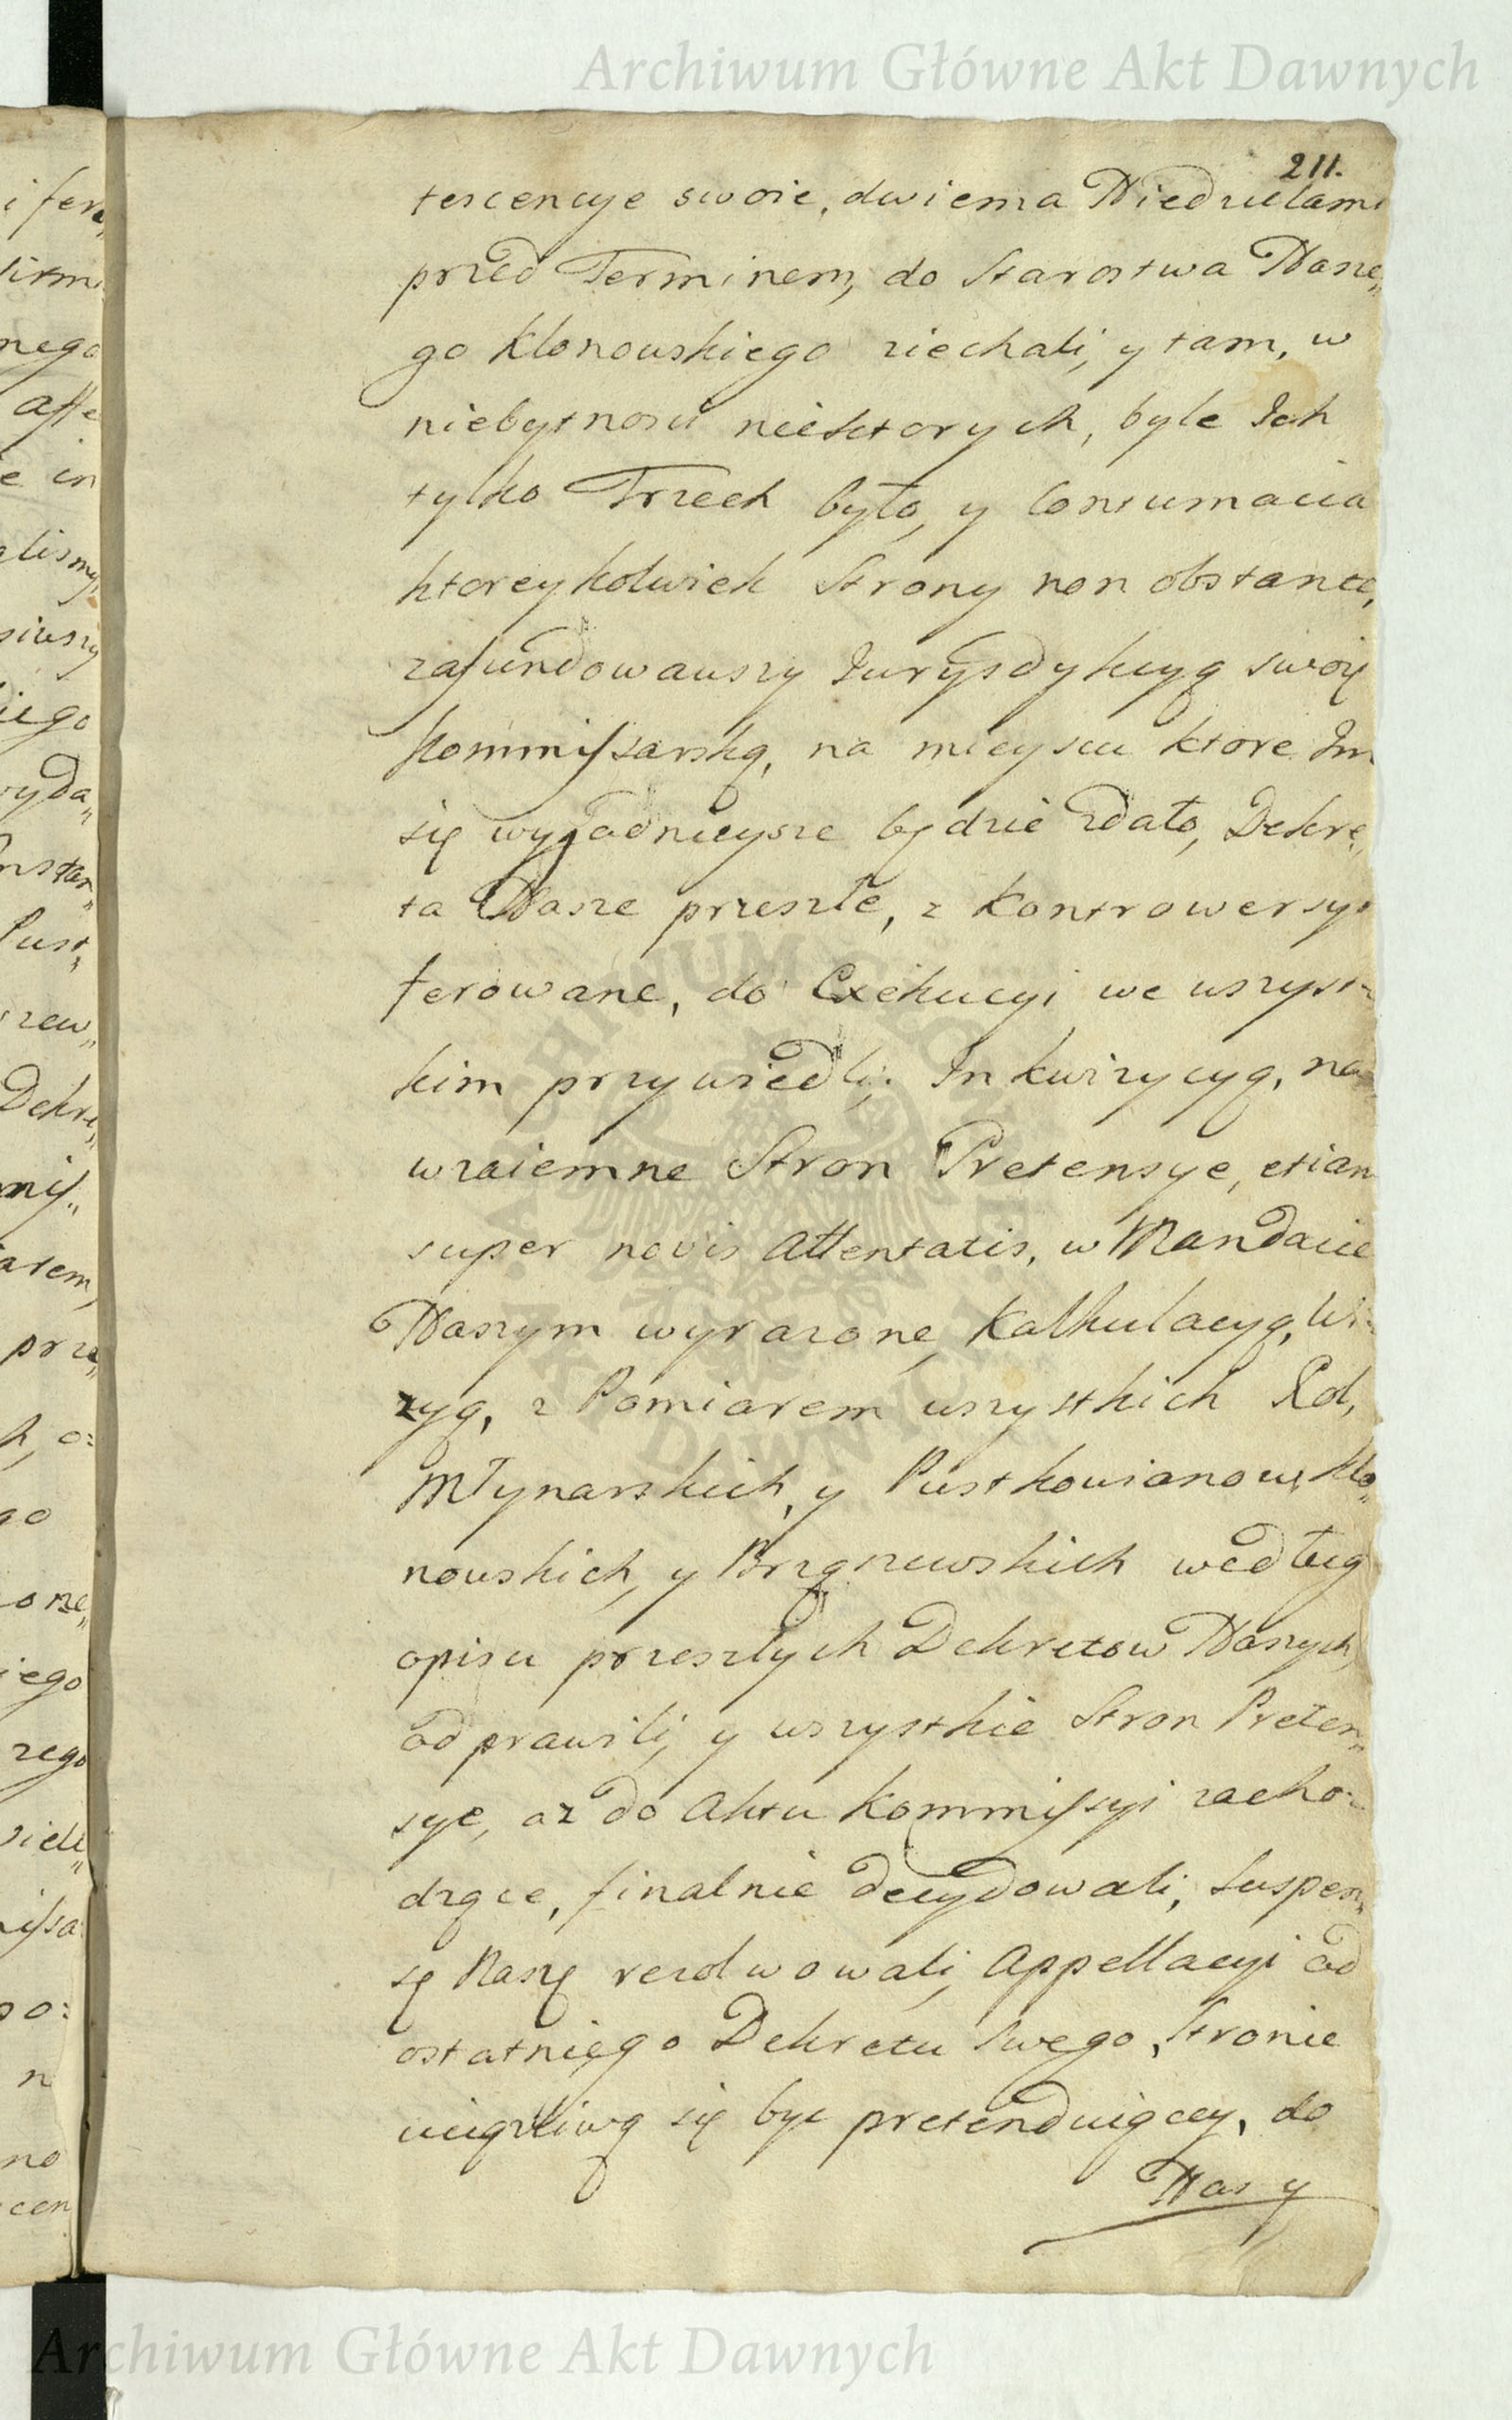 Archiwum Główne Akt Dawnych
211.
tercencye swoie, dwiema Niedzielami
przed Terminem, do Starostwa Nasze„
go Klonowskiego ziechali, y tam, w
niebytnosci niektorych, byle Ich
tylko Trzech było, y Contumacia
ktoreykolwiek Strony non obstante,
zafundowawszy Iurysdykcyą swoię
Kommissarską, na mieyscu ktore Im
się wygodnieysze będzie zdało, Dekre„
ta Nasze przeszłe, z Kontrowersyi
ferowane, do Exekucyi we wszyst=
kim przywiedli; Inkwizycyą, na
wzaiemne Stron Pretensye, etiam
super novis Attentatis, w Mandacie
Naszym wyrazone, Kalkulacyą, Wi=
zyą, z Pomiarem wszystkich Rol,
Młynarskich, y Pustkowianow, Klo„
nowskich, y Brzązewskich według
opisu przeszłych Dekretow Naszych,
odprawili, y wszystkie Stron Preten„
sye, az do Aktu Kommissyi zacho=
dzące, finalnie decydowali, Suspen„
sę Naszę rezolwowali, Appellacyi od
ostatniego Dekretu swego, Stronie
uciązliwą się byc pretenduiącey, do
Nas y
i fere„
nego
e in
iego
wyda„
nstan„
Pust„
zew„
Dekre„
atem,
prze„
go
iego
zego
po:
n
no
cen
ARCHIWUM GŁÓWNE
AKT DAWNYCH
Archiwum Główne Akt Dawnych